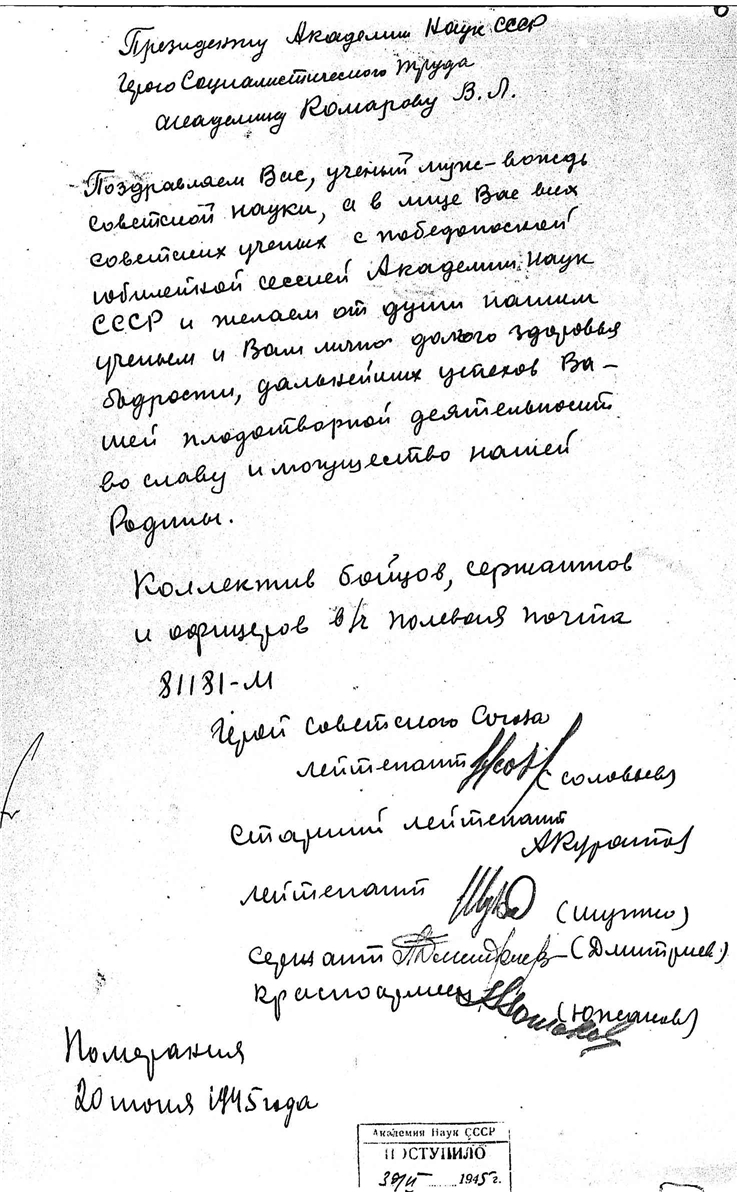 6
Президенту Академии Наук СССР
Герою Социалистического Труда
академику Комарову В.Л.
Поздравляем Вас, ученый муж – вождь
советской науки, а в лице Вас всех
советских ученых с победоносной
юбилейной сессией Академии Наук
СССР и желаем от души нашим
ученым и Вам лично долгого здоровья
бодрости, дальнейших успехов Ва-
шей плодотворной деятельности
во славу и могущество нашей
Родины.
Коллектив бойцов, сержантов
и офицеров в/ч полевая почта
81181-М
Герой Советского Союза
лейтенант (Соловьев)
Старший лейтенант
лейтенант
сержант (Дмитриев)
красноармеец (Южаков)
Померания
20 июня 1945 года
Академия Наук СССР
ПОСТУПИЛО
1945 г.